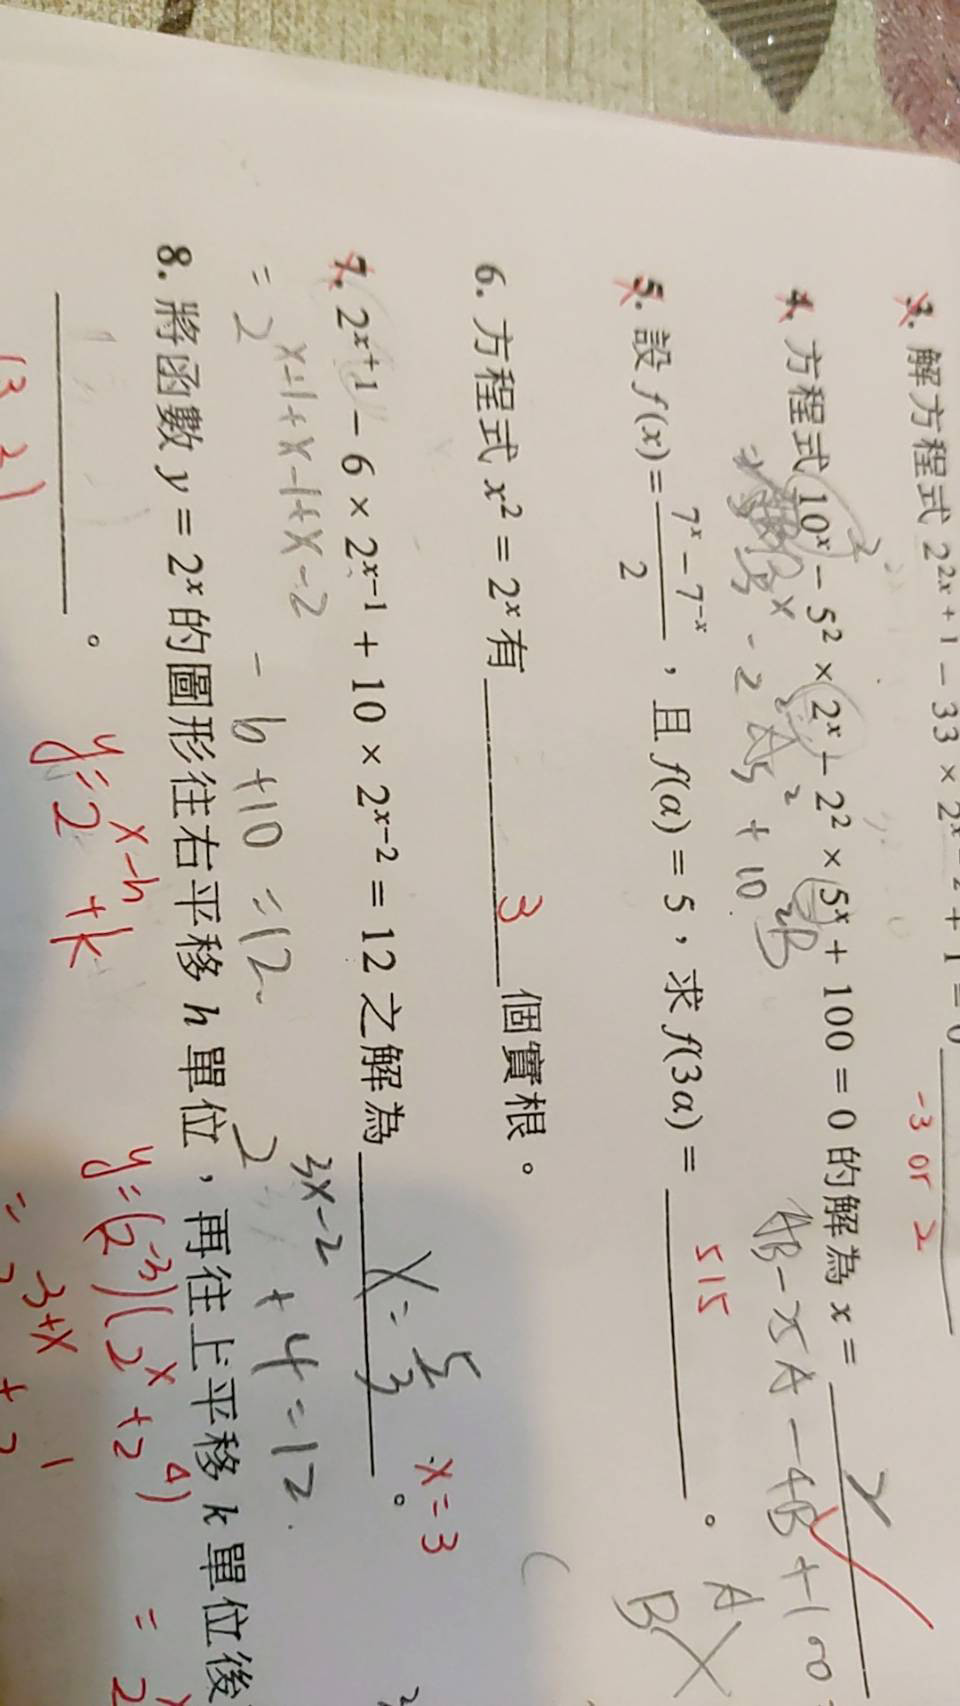 3. 解方程式 2²ˣ⁺¹ − 33 × 2ˣ⁻¹ + 1 = 0
-3 or 2
4. 方程式 10ˣ − 5² × 2ˣ − 2² × 5ˣ + 100 = 0 的解為 x = 2
5. 設 f(x) = (7ˣ − 7⁻ˣ)/2 , 且 f(α) = 5 , 求 f(3α) = 515 。
A
B
6. 方程式 x² = 2ˣ 有 3 個實根。
x = 3
7. 2ˣ⁺¹ − 6 × 2ˣ⁻¹ + 10 × 2ˣ⁻² = 12 之解為 x = 5/3 。
= 2ˣ⁻¹⁺ˣ⁻¹⁺ˣ⁻² − 6 + 10 = 12 2³ˣ⁻² + 4 = 12.
8. 將函數 y = 2ˣ 的圖形往右平移 h 單位 , 再往上平移 k 單位後
y = (2⁻³)(2ˣ + 2⁴) =
。 y = 2ˣ⁻ʰ + k